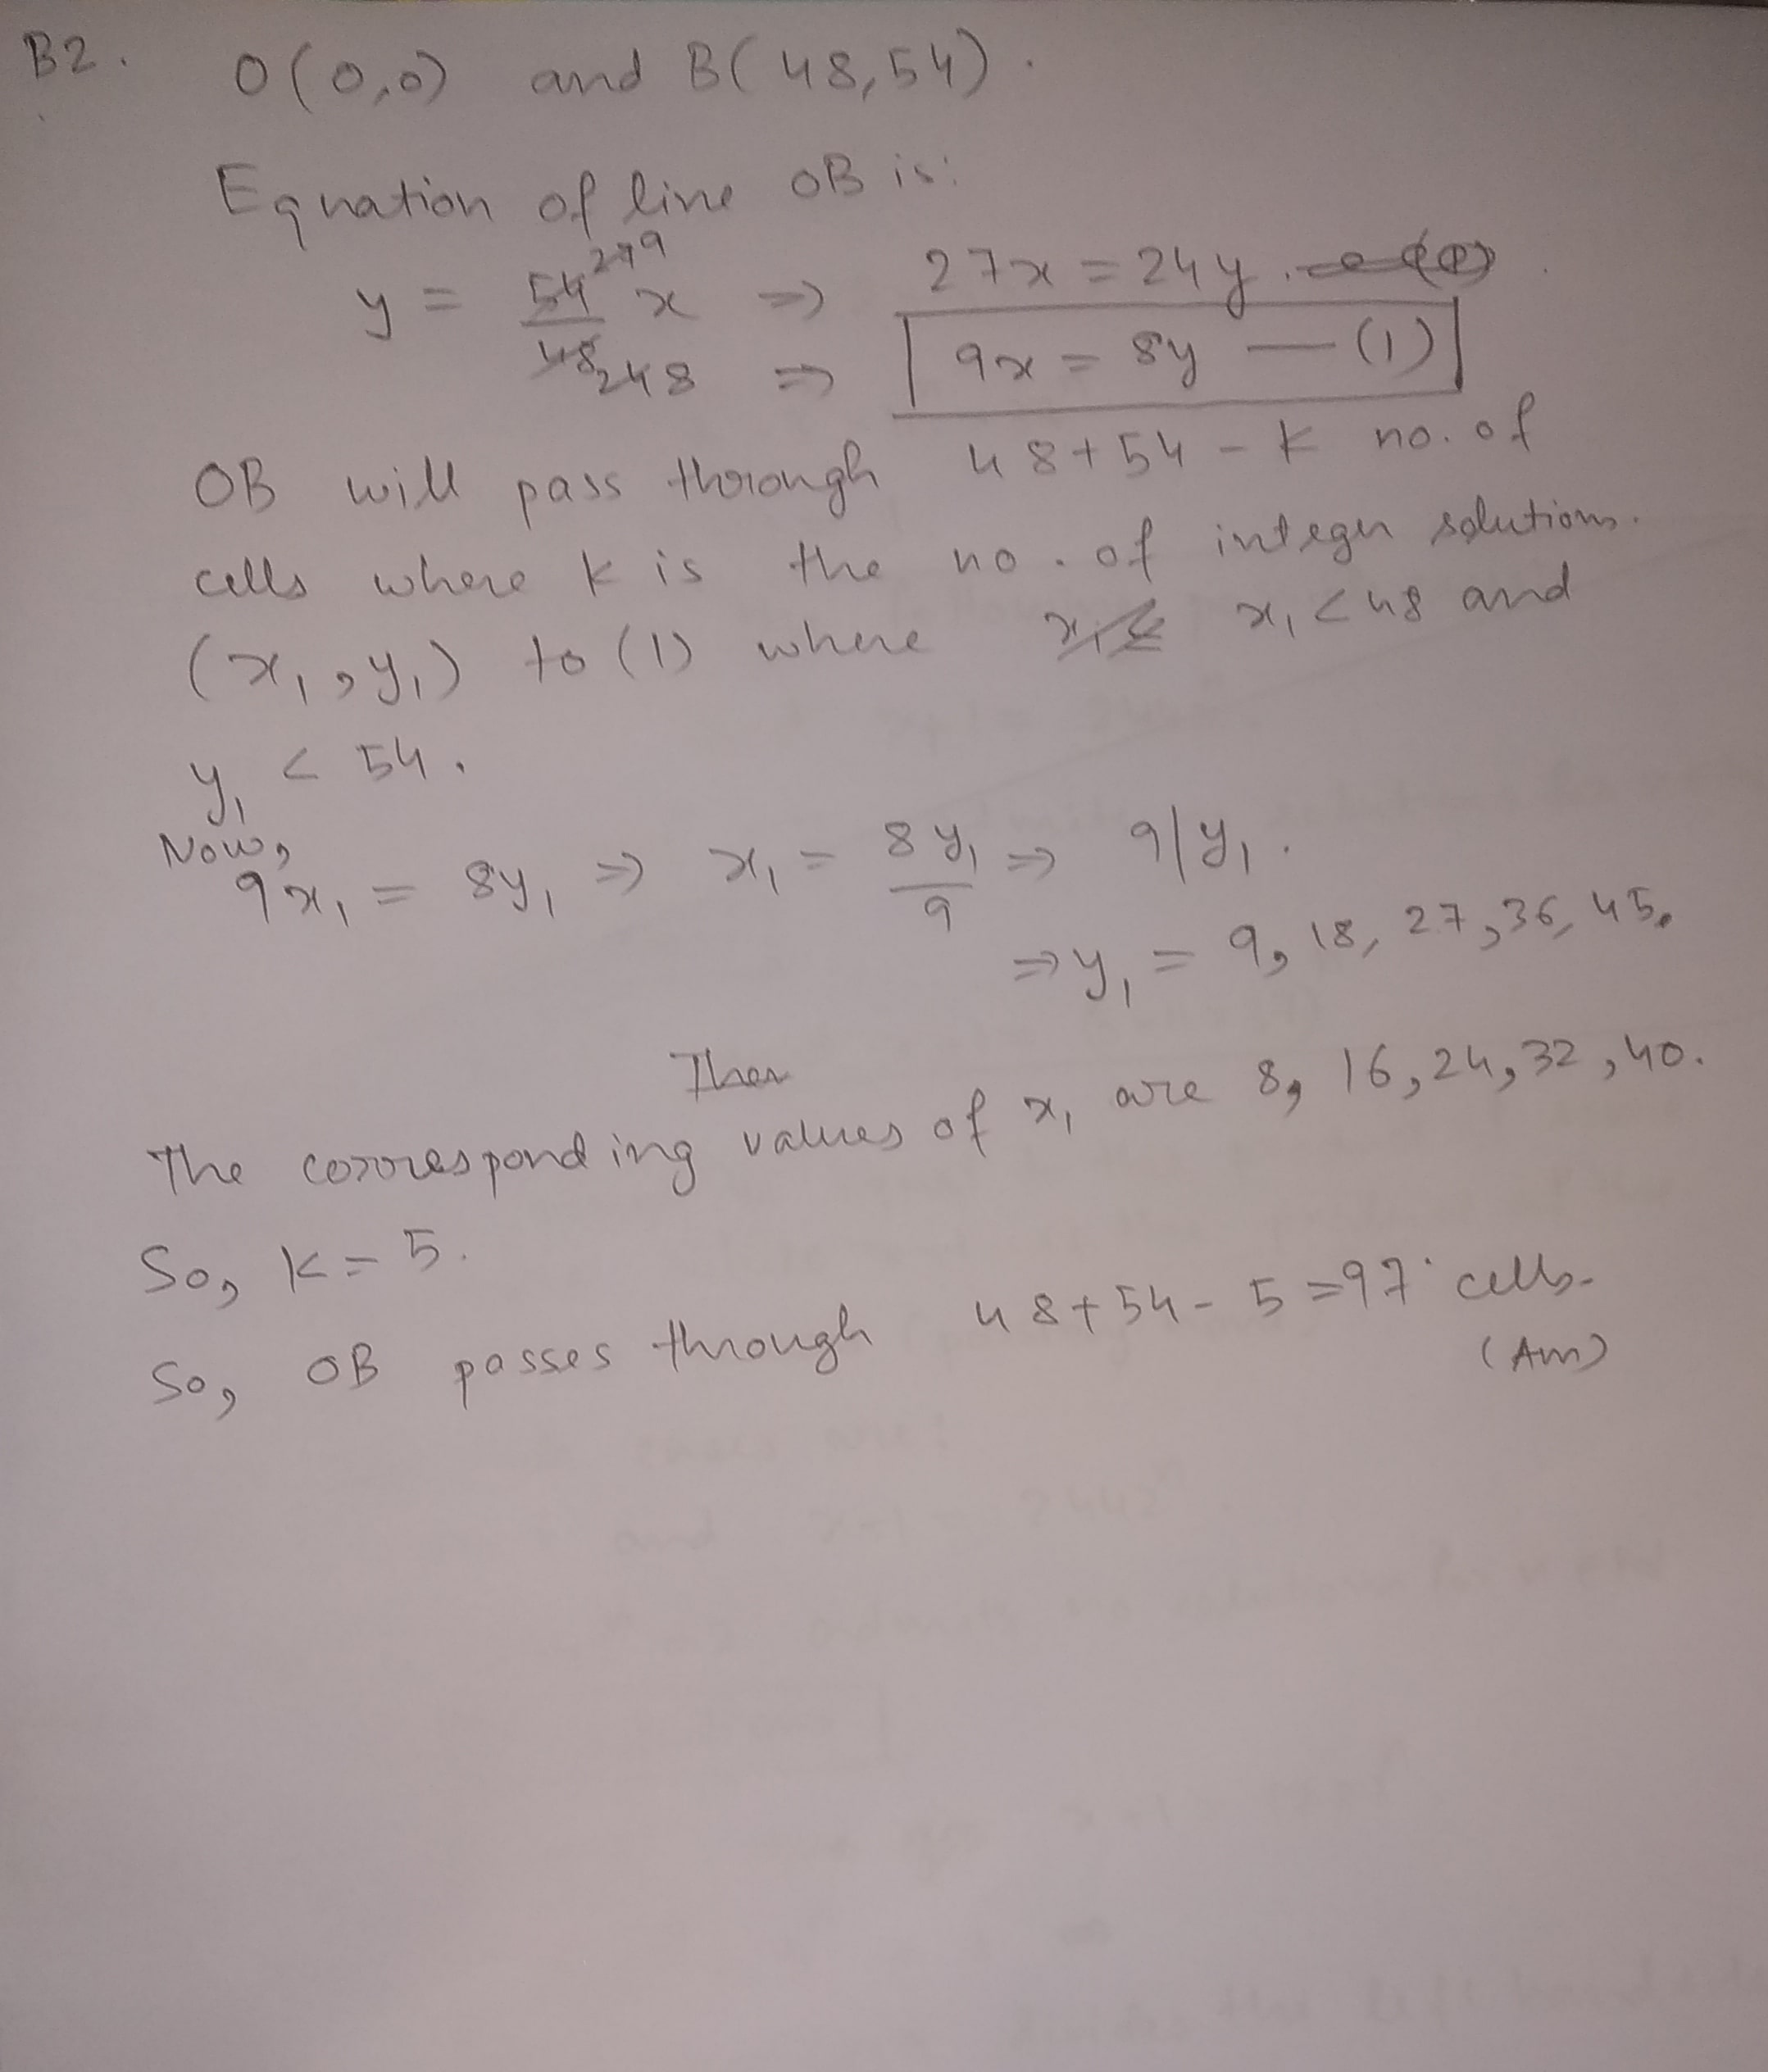 B2. O(0,0) and B(48,54).
Equation of line OB is:
y = 54/48 x 27 9 24 8 ⇒ 27x = 24y.
⇒ 9x = 8y — (1)
OB will pass through 48+54-k no. of
cells where k is the no. of integer solutions.
(x₁, y₁) to (1) where x₁ < 48 and
y₁ < 54.
Now,
9x₁ = 8y₁ ⇒ x₁ = 8y₁/9 ⇒ 9|y₁.
⇒ y₁ = 9, 18, 27, 36, 45.
Then
The corresponding values of x₁ are 8, 16, 24, 32, 40.
So, k = 5.
So, OB passes through 48+54-5 = 97 cells.
(Ans)